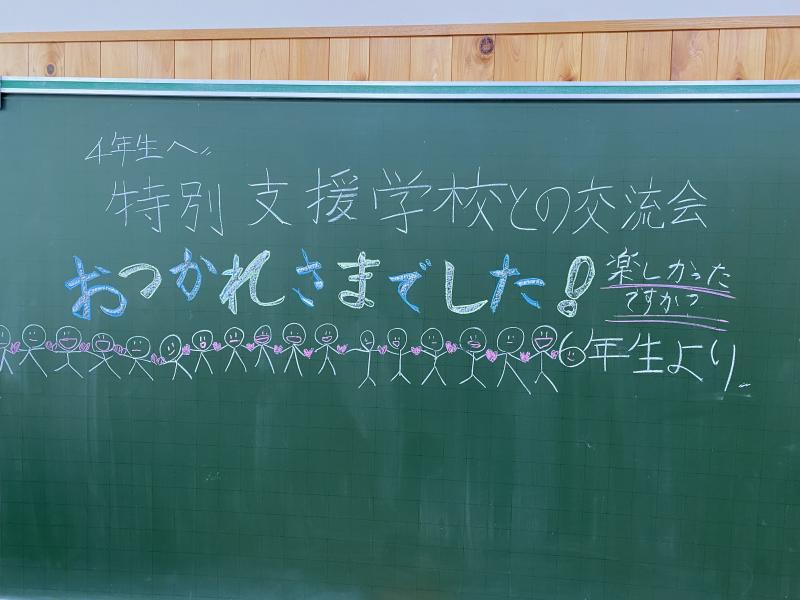 4年生へ〃
特別支援学校との交流会
おつかれさまでした!
楽しかった
ですか?
6年生より